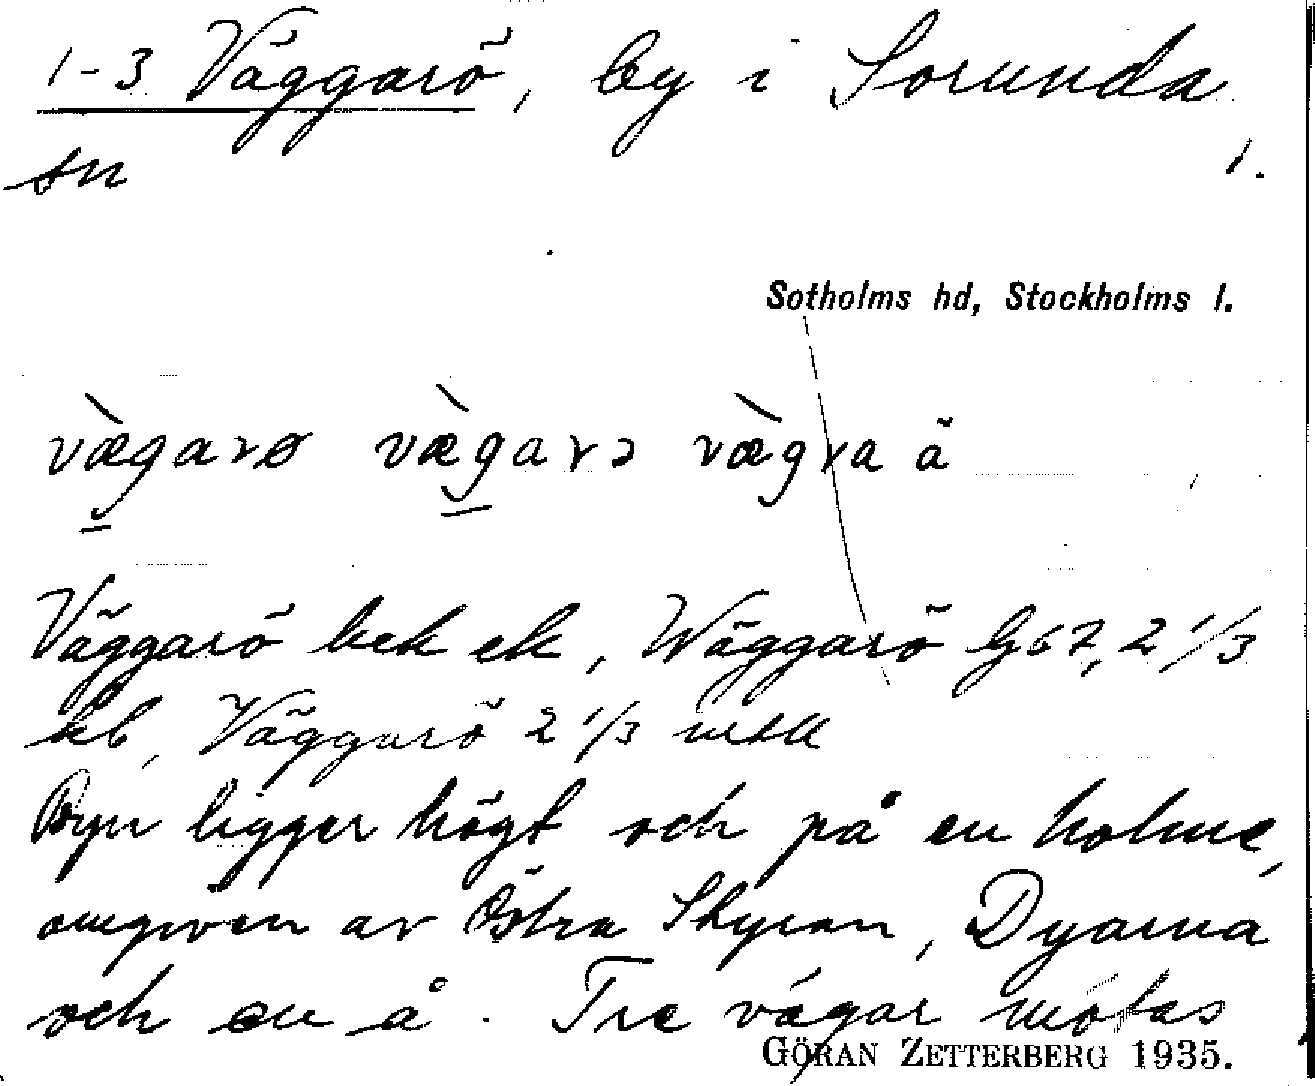 1-3 Väggarö, by i Sorunda
sn 1.
Sotholms hd, Stockholms l.
vægarø vægarɔ vægra ä
Väggarö bek ek, Wäggarö G67, 2 1/3
kb, Väggarö 2 1/3 mtl
Byn ligger högt och på en holme,
omgiven av Östra Styran, Dyarna
och en å. Tre vägar mötas
GÖRAN ZETTERBERG 1935.